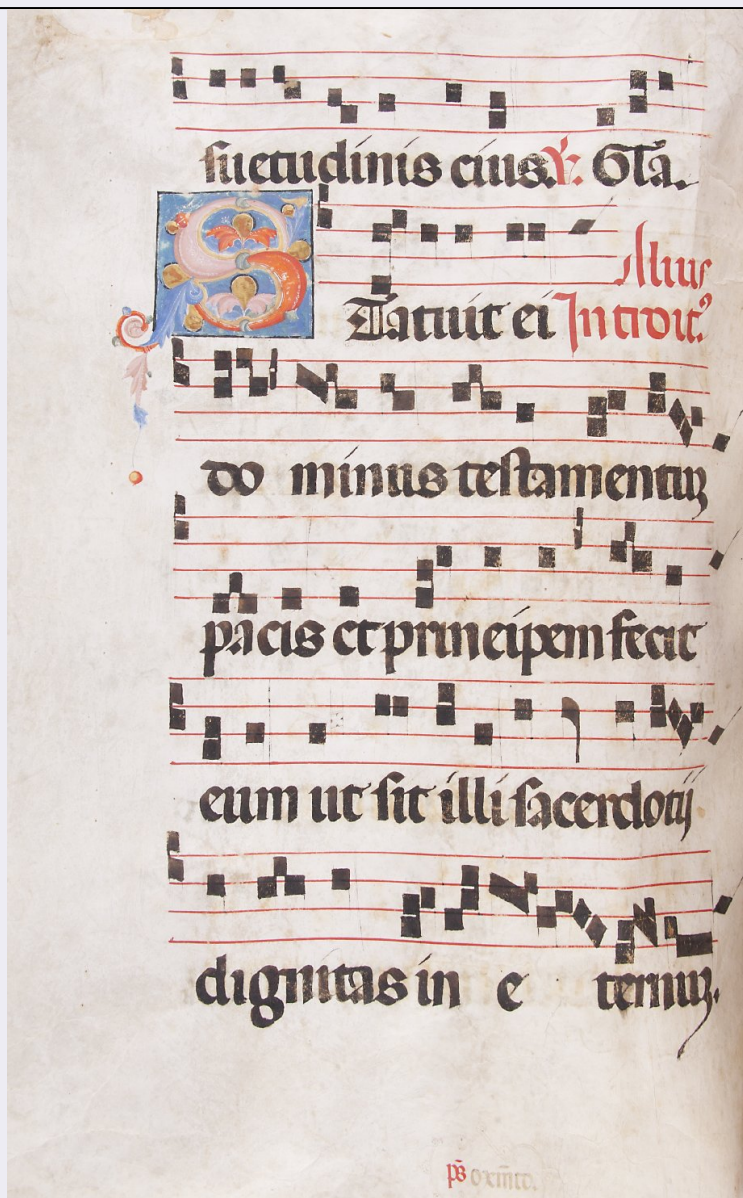 suetudinis eius. ℣. Gl̄a.
STatuit ei
Alius Introitꝰ
do minus testamentuꝫ
pacis et principem fecit
eum ut sit illi sacerdotij
dignitas in e ternuꝫ.
ps̄